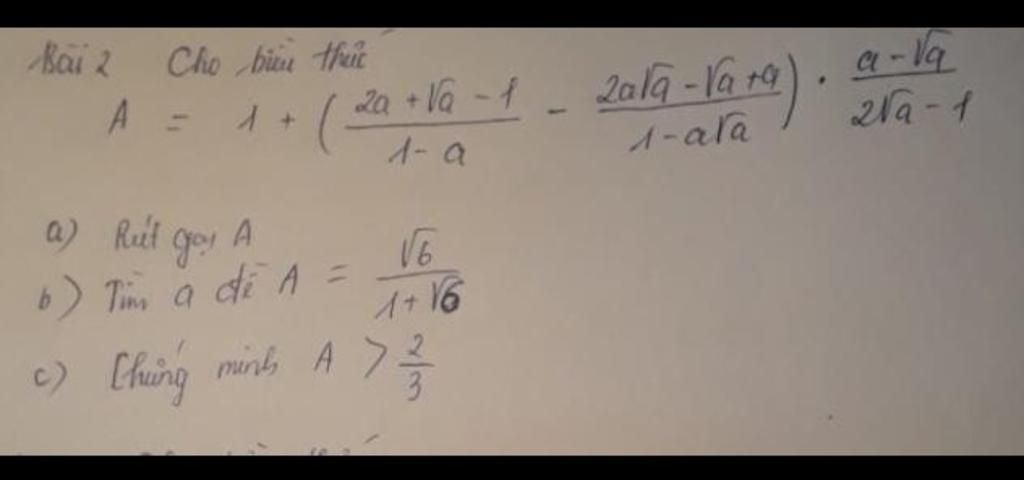 Bài 2 Cho biểu thức
A = 1 + ( \frac{2a + √a - 1}{1 - a} - \frac{2a√a - √a + a}{1 - a√a} ) . \frac{a - √a}{2√a - 1}
a) Rút gọn A
b) Tìm a để A = \frac{√6}{1 + √6}
c) Chứng minh A > \frac{2}{3}